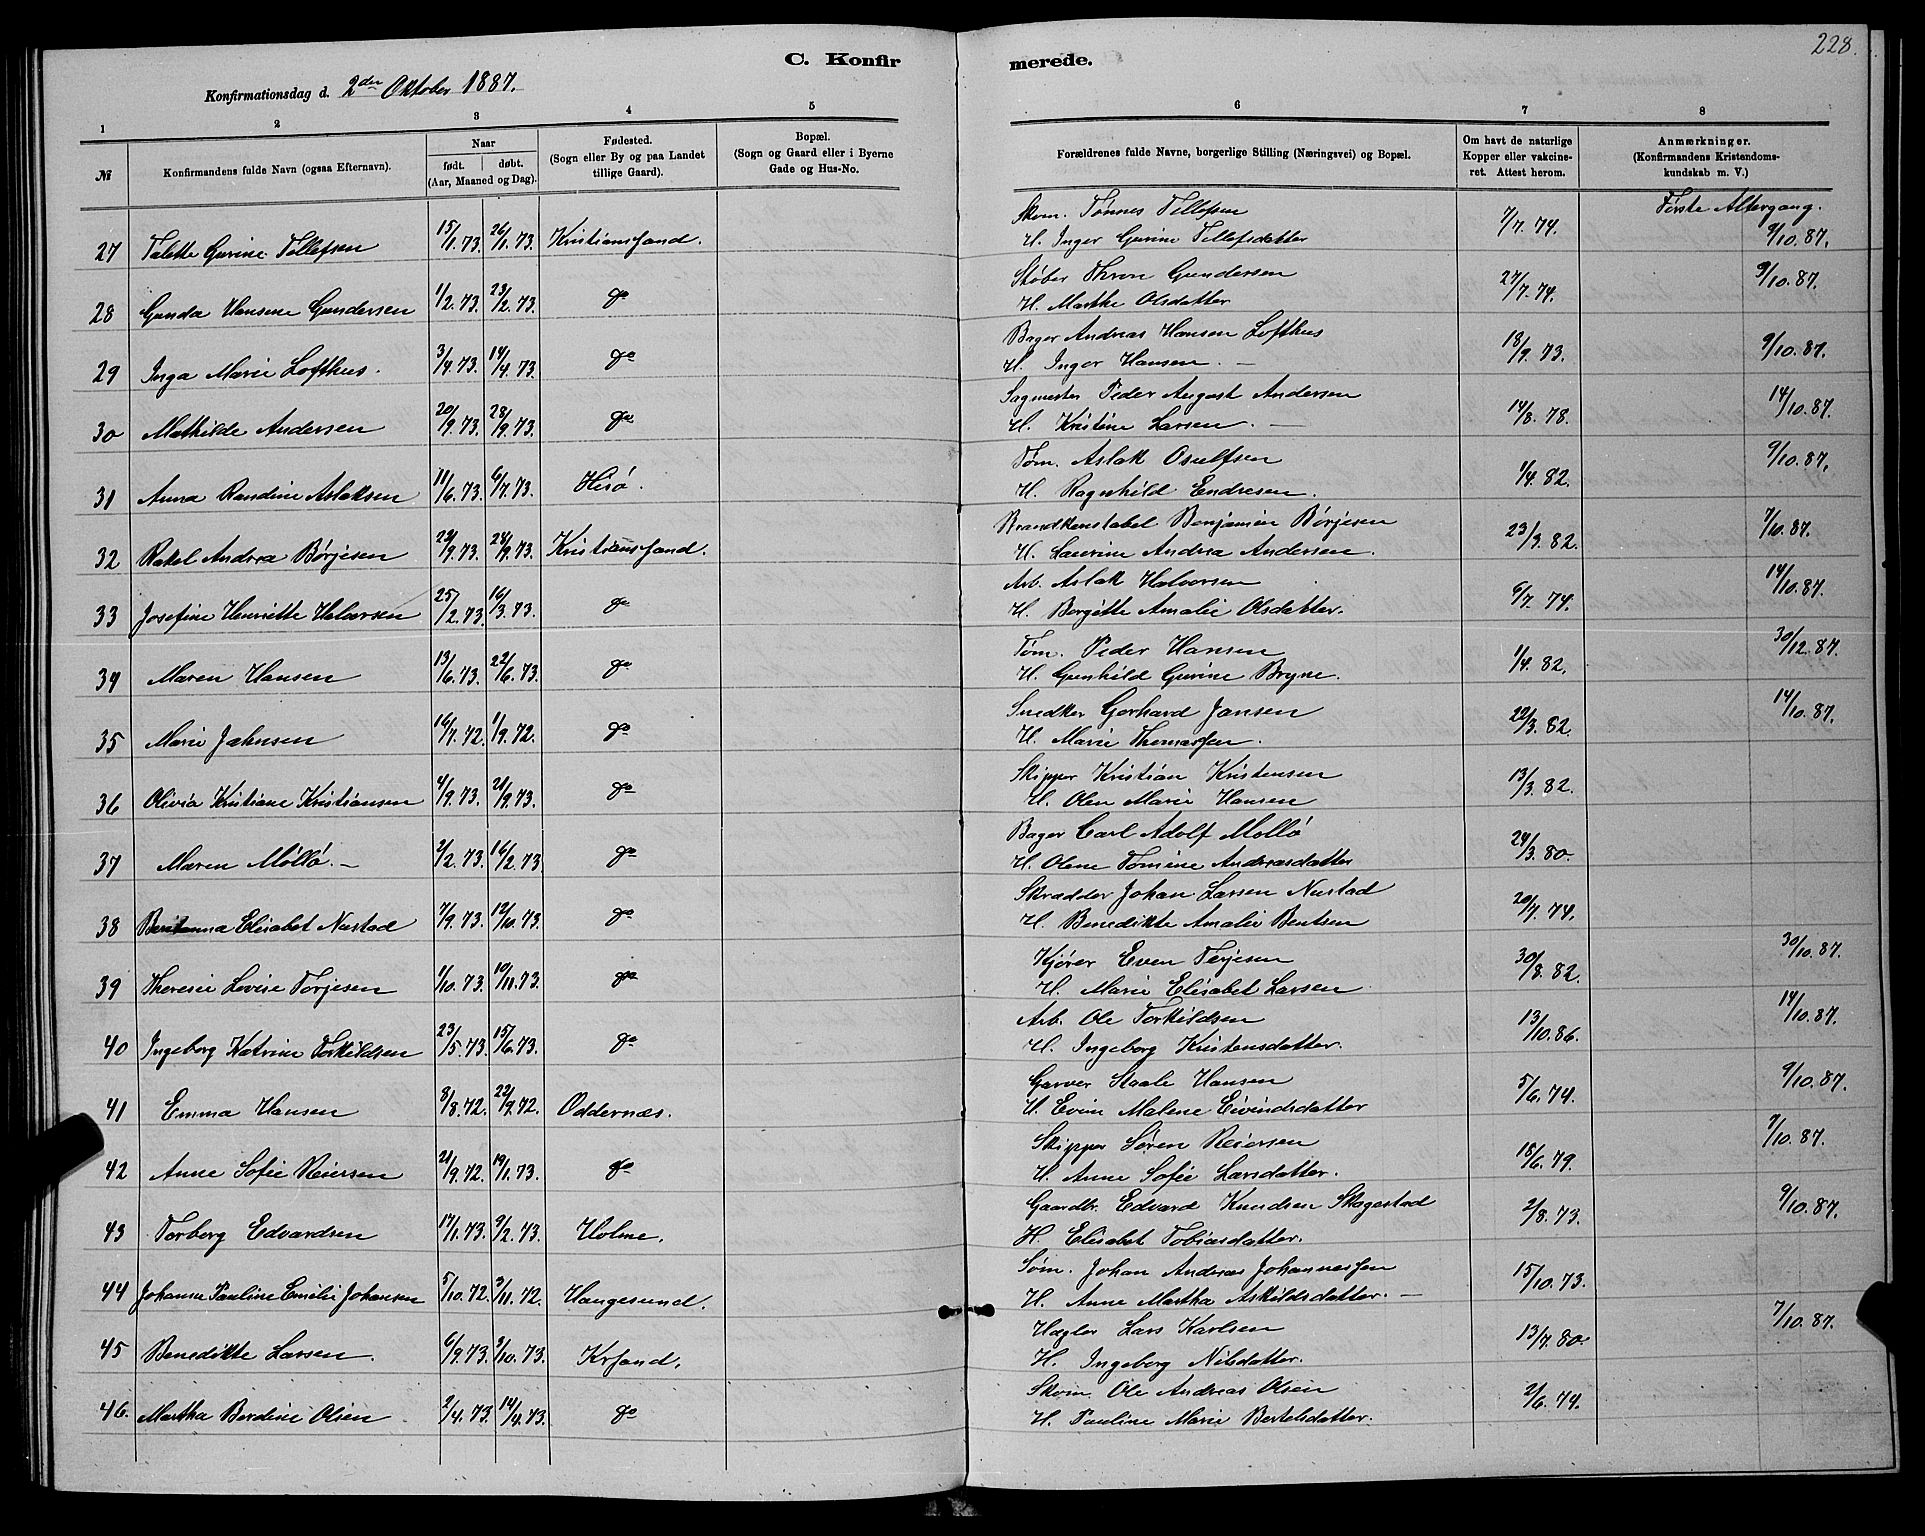 228.
C. Konfirmerede.
Konfirmationsdag d. 2den Oktober 1887.
1 2 3 4 5 6 7 8
№ Konfirmandens fulde Navn (ogsaa Efternavn). Naar født. døbt. (Aar, Maaned og Dag). Fødested. (Sogn eller By og paa Landet tillige Gaard). Bopæl. (Sogn og Gaard eller i Byerne Gade og Hus-No. Forældrenes fulde Navne, borgerlige Stilling (Næringsvei) og Bopæl. Om havt de naturlige Kopper eller vakcineret. Attest herom. Anmærkninger. (Konfirmandens Kristendomskundskab m. V.)
Første Altergang.
27 Talette Gurine Tellefsen 15/1.73. 26/1.73. Kristianssand. Skom. Tønnes Tellefsen 7/7.74. 9/10.87.
H. Inger Gurine Tellefsdatter
28 Gunda Hansine Gundersen 1/2.73. 23/2.73. do Støber Thron Gundersen 27/7.74. 9/10.87.
H. Marthe Olsdatter
29 Inga Marie Lofthus. 3/4.73. 14/4.73. do Bager Andreas Hansen Lofthus 18/9.73. 9/10.87.
H. Inger Hansen. —
30 Mathilde Andersen 20/9.73. 28/9.73. do Sagmester Peder August Andersen 14/8.78. 14/10.87.
H. Kristine Larsen. —
31 Anna Randine Aslaksen 11/6.73. 6/7.73. Hisø. Tøm. Aslak Osulfsen 1/4.82. 9/10.87.
H. Ragnhild Endresen.
32 Rakel Andrea Børjesen 24/9.73. Kristianssand. Brandkonstabel Benjamin Børjesen 23/3.82. 7/10.87.
H. Laurine Andrea Andersen.
33 Josefine Henriette Halvorsen 25/2.73. 16/3.73. do Arb. Aslak Halvorsen 6/7.74. 14/10.87.
H. Borgitte Amalie Olsdatter.
34 Maren Hansen 13/6.73. 22/6.73. do Tøm. Peder Hansen 1/4.82. 30/12.87.
H. Gunhild Gurine Bryne.
35 Marie Jahnsen 16/7.72. 1/9.72. do Snedker Gerhard Jansen 22/3.82. 14/10.87.
H. Marie Thomassen.
36 Olivia Kristiane Kristiansen 4/9.73. 21/9.73. do Skipper Kristian Kristensen 13/3.82.
H. Olen Marie Hansen
37 Maren Møllø. — 2/2.73. 16/2.73 do Bager Carl Adolf Mollø 24/3.80.
H. Olene Tomine Andreasdatter
38 Elisabet Nustad 7/9.73. 12/10.73. do Skrædder Johan Larsen Nustad 20/7.74.
H. Benedikte Amalie Bentsen
39 Theresie Lovise Torjesen 1/10.73. 10/11.73. do Kjører Even Terjesen 30/8.82. 30/10.87.
H. Marie Elisabet Larsen
40 Ingeborg Katrine Torkildsen 23/5.73. 15/6.73. do Arb. Ole Torkildsen 13/10.86. 14/10.87.
H. Ingeborg Kristensdatter.
41 Emma Hansen 8/8.72. 22/9.72. Oddernæs. Garver Staale Hansen 5/6.74. 9/10.87.
H. Evine Malene Eivindsdatter
42 Anne Sofie Reiersen 21/9.72. 19/1.73. do Skipper Søren Reiersen 18/6.79. 7/10.87.
H. Anne Sofie Larsdatter.
43 Torborg Edvardsen 17/1.73. 9/2.73. Holme. Gaardbr. Edvard Knudsen Skagestad 2/8.73. 9/10.87.
H. Elisabet Tobiasdatter.
44 Johanne Pauline Emilie Johansen 5/10.72. 3/11.72. Haugesund. Søm. Johan Andreas Johannessen 15/10.73.
H. Anne Martha Askildsdatter. —
45 Benedikte Larsen. 6/9.73. 3/10.73. Krsand. Hægler Lars Karlsen 13/7.80. 7/10.87.
H. Ingeborg Nilsdatter.
46. Martha Berdine Olsen 2/4.73. 14/4.73. do Skom. Ole Andreas Olsen 2/6.74.
H. Pauline Marie Bertelsdatter.